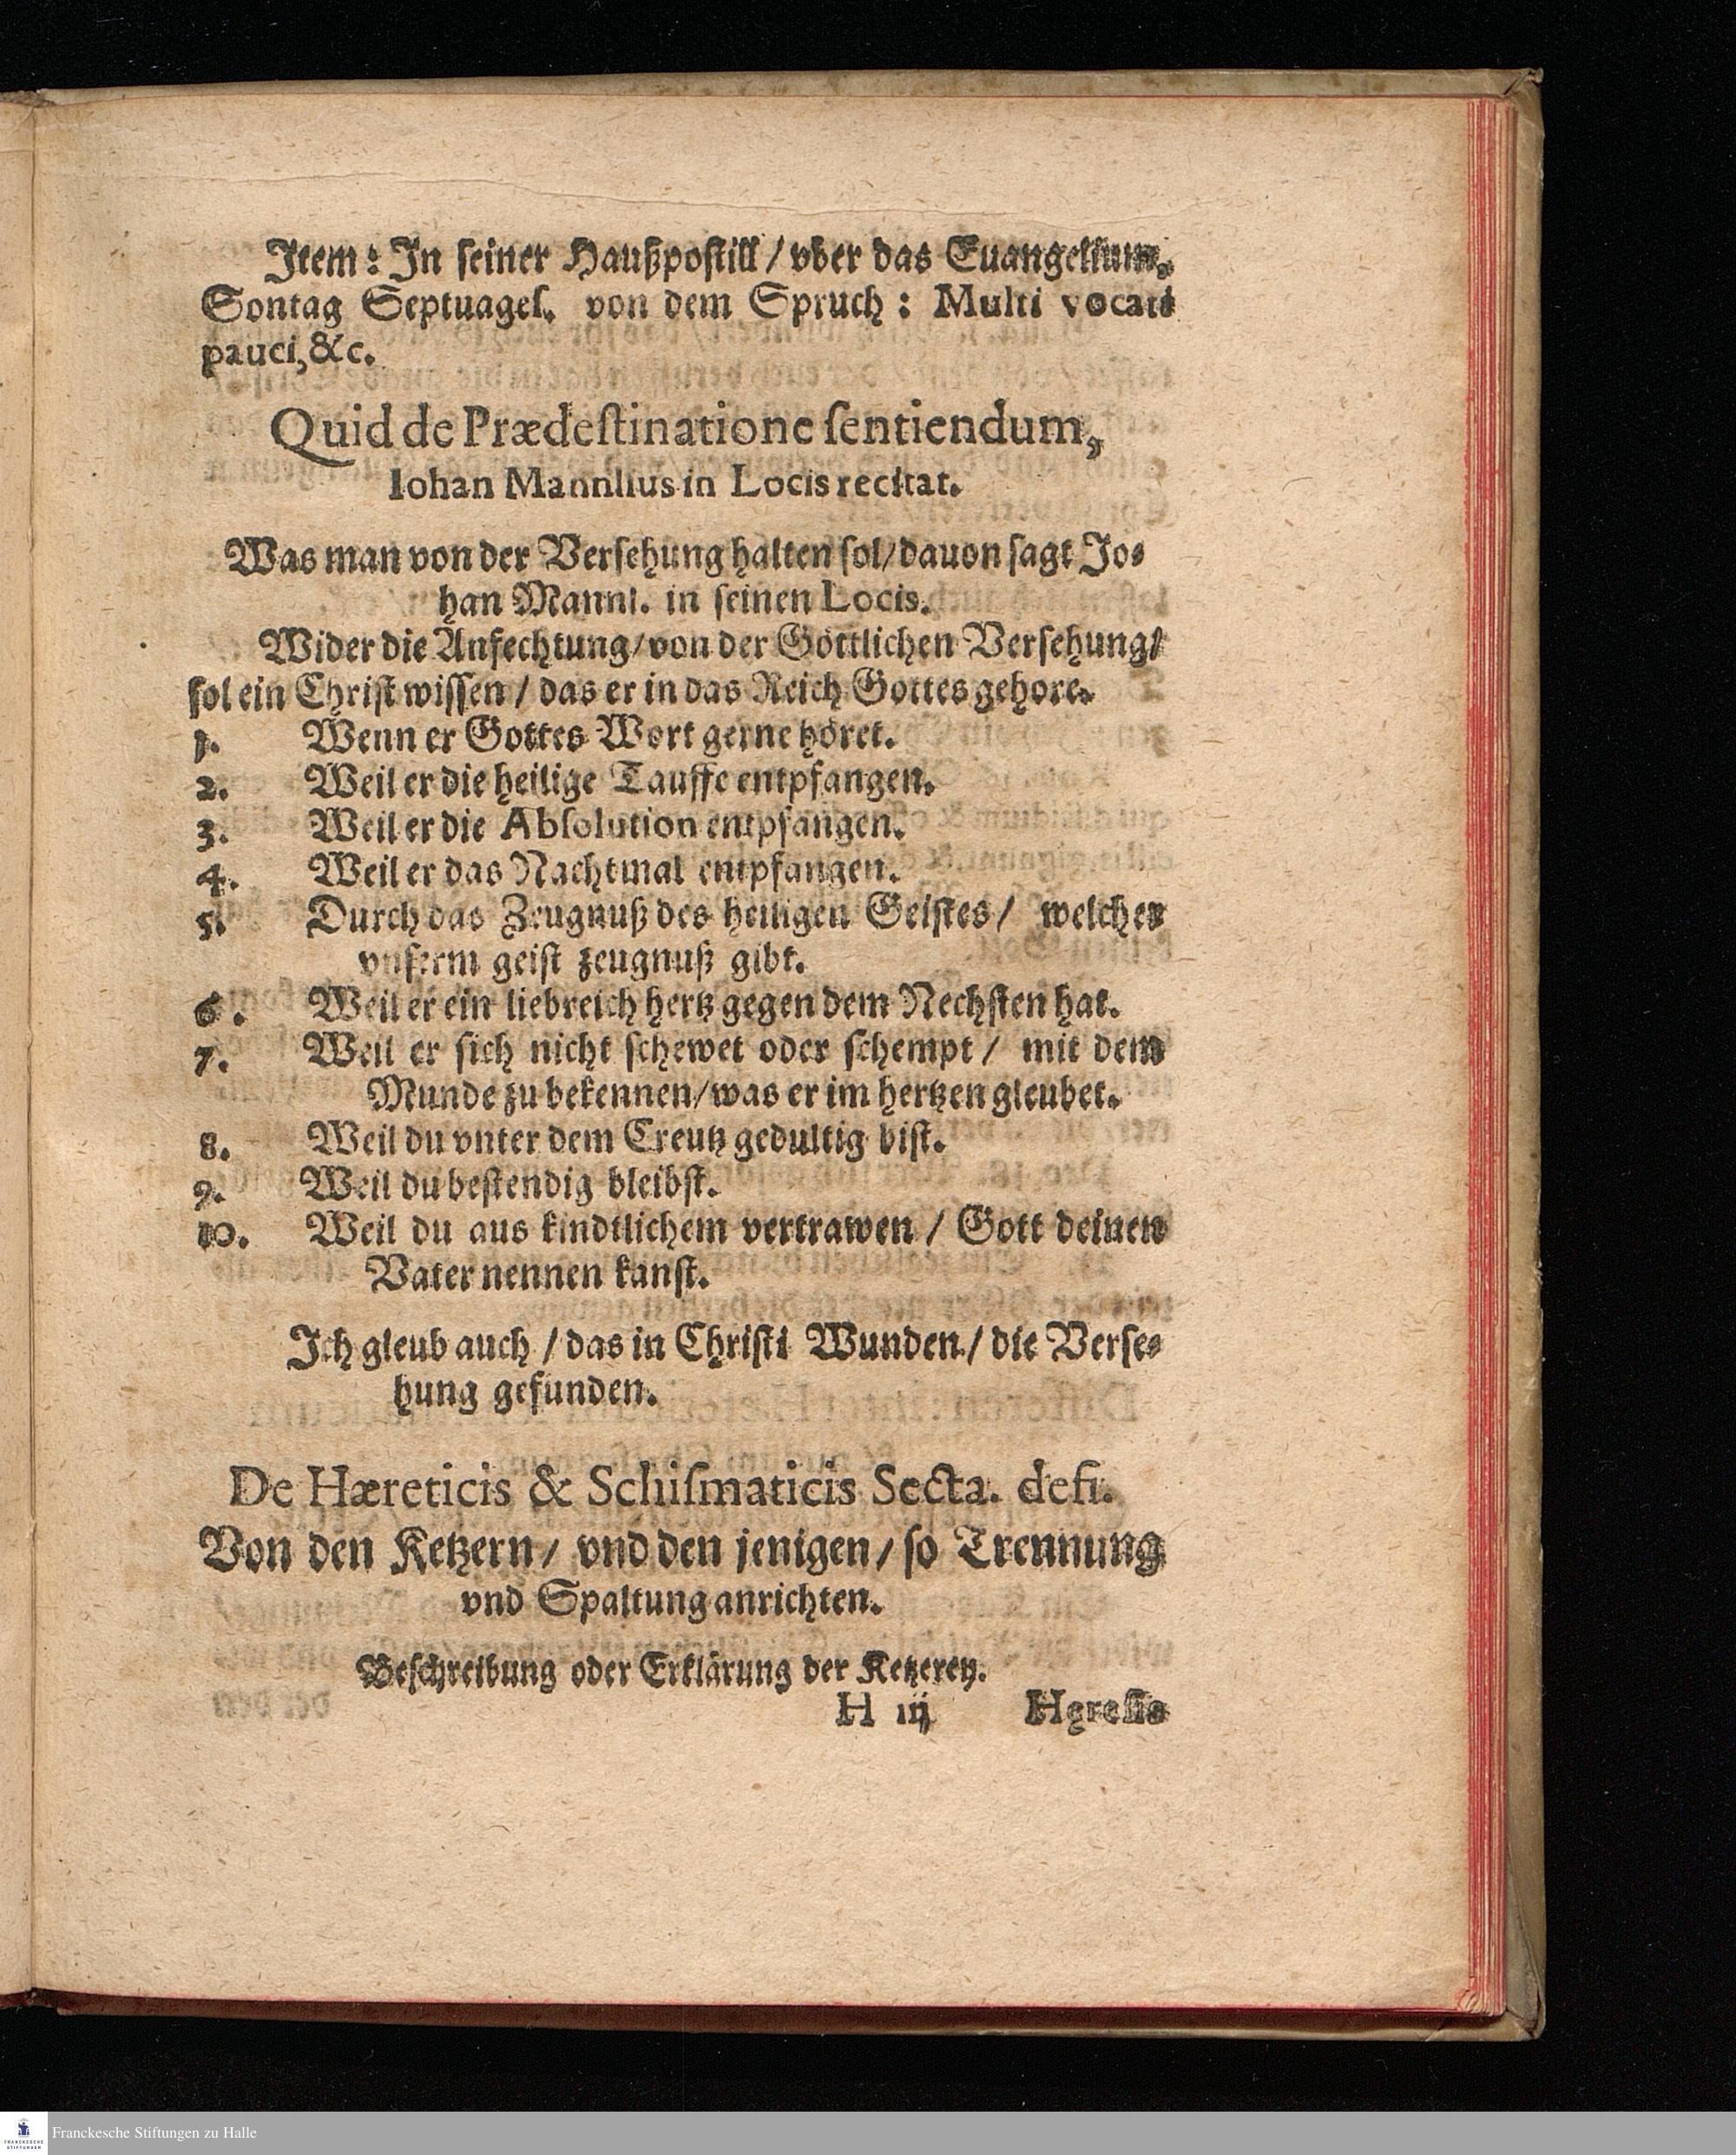 Item: In seiner Haußpostill / vber das Euangelium.
Sontag Septuages. von dem Spruch: Multi vocati
pauci, &c.
Quid de Prædestinatione sentiendum,
Iohan Mannlius in Locis recitat.
Was man von der Versehung halten sol / dauon sagt Jo⸗
han Mannl. in seinen Locis.
Wider die Anfechtung / von der Göttlichen Versehung /
sol ein Christ wissen / das er in das Reich Gottes gehöre.
1. Wenn er Gottes Wort gerne höret.
2. Weil er die heilige Tauffe entpfangen.
3. Weil er die Absolution entpfangen.
4. Weil er das Nachtmal entpfangen.
5. Durch das Zeugnuß des heiligen Geistes / welcher
vnserm geist zeugnuß gibt.
6. Weil er ein liebreich hertz gegen dem Nechsten hat.
7. Weil er sich nicht schewet oder schempt / mit dem
Munde zu bekennen / was er im hertzen gleubet.
8. Weil du vnter dem Creutz gedultig bist.
9. Weil du bestendig bleibst.
10. Weil du aus kindtlichem vertrawen / Gott deinen
Vater nennen kanst.
Ich gleub auch / das in Christi Wunden / die Verse⸗
hung gefunden.
De Hæreticis & Schismaticis Secta. defi.
Von den Ketzern / vnd den jenigen / so Trennung
vnd Spaltung anrichten.
Beschreibung oder Erklärung der Ketzerey.
H iij Hęresis
Franckesche Stiftungen zu Halle
FRANCKESCHE
STIFTUNGEN